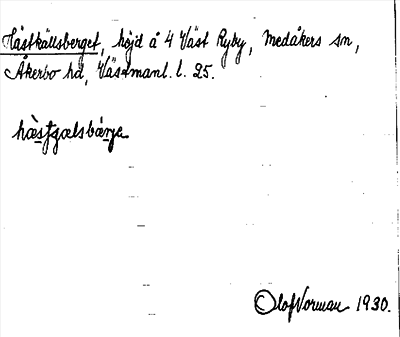 Hästkällsberget, höjd å 4 Väst Ryby, Medåkers sn,
Åkerbo hd, Västmanl. l. 25.
Olof Norman 1930.